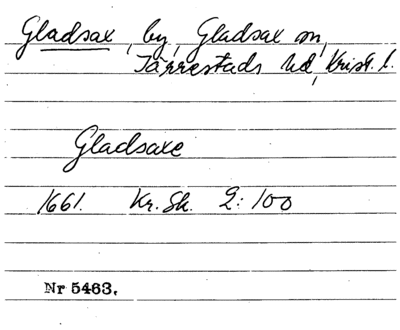 Gladsax, by, Gladsax sn,
Järrestads hd, Krist. l.
Gladsaxe
1661. Kr. Sk. 2: 100
Nr 5463.